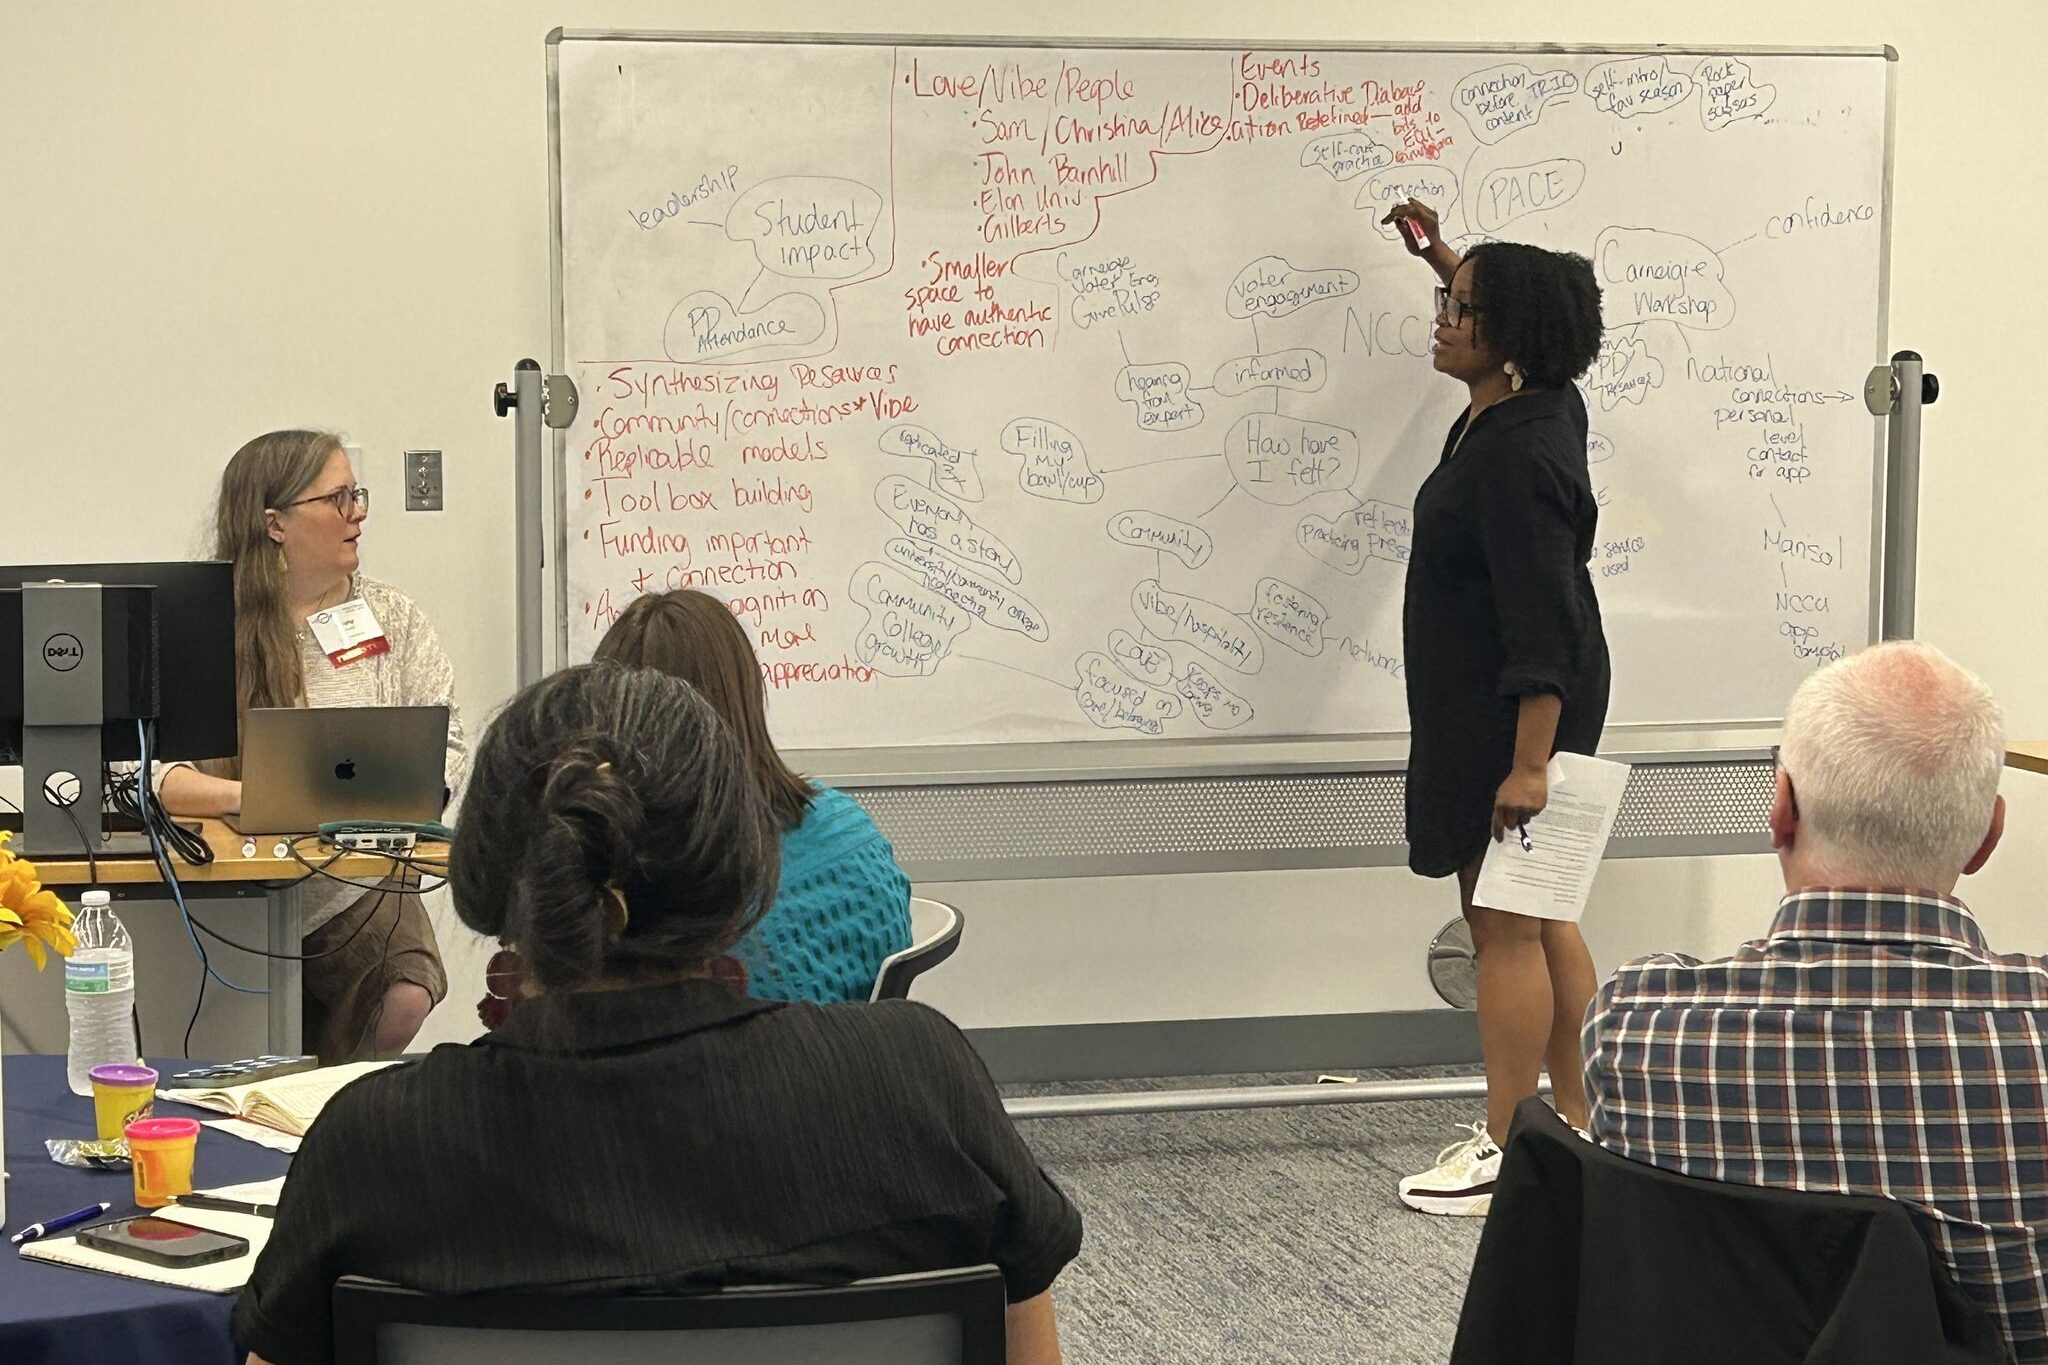 leadership
Student
impact
PD
Attendance
• Synthesizing Resources
• Community/connections * Vibe
• Replicable models
• Toolbox building
• Funding important
+ connection
more
appreciation
• Love/Vibe/People
• Sam/Christina/Alice
• John Barnhill
• Elon Univ.
• Gilberts
• Smaller
space to
have authentic
connection
Events
• Deliberative Dialogue
Redefined — add
bits to
self-care
practice
Connection
connection
before
content
TRIO
self-intro/
fav season
Rock
paper
scissors
PACE
Carneigie
Workshop
confidence
PD/
National
connections →
personal
level
contact
for app
Marisol
NCCU
app
Carneigie
Voter Eng
GivePulse
voter
engagement
NCC
informed
hearing
from
expert
How have
I felt?
Filling
my
bowl/cup
replicated
Everyone
has a story
university/community college
connecting
Community
College
growth
Community
vibe/hospitality
fostering
resilience
network
LOVE
focused on
care/belonging
reflect
practicing prese
service
used
DELL